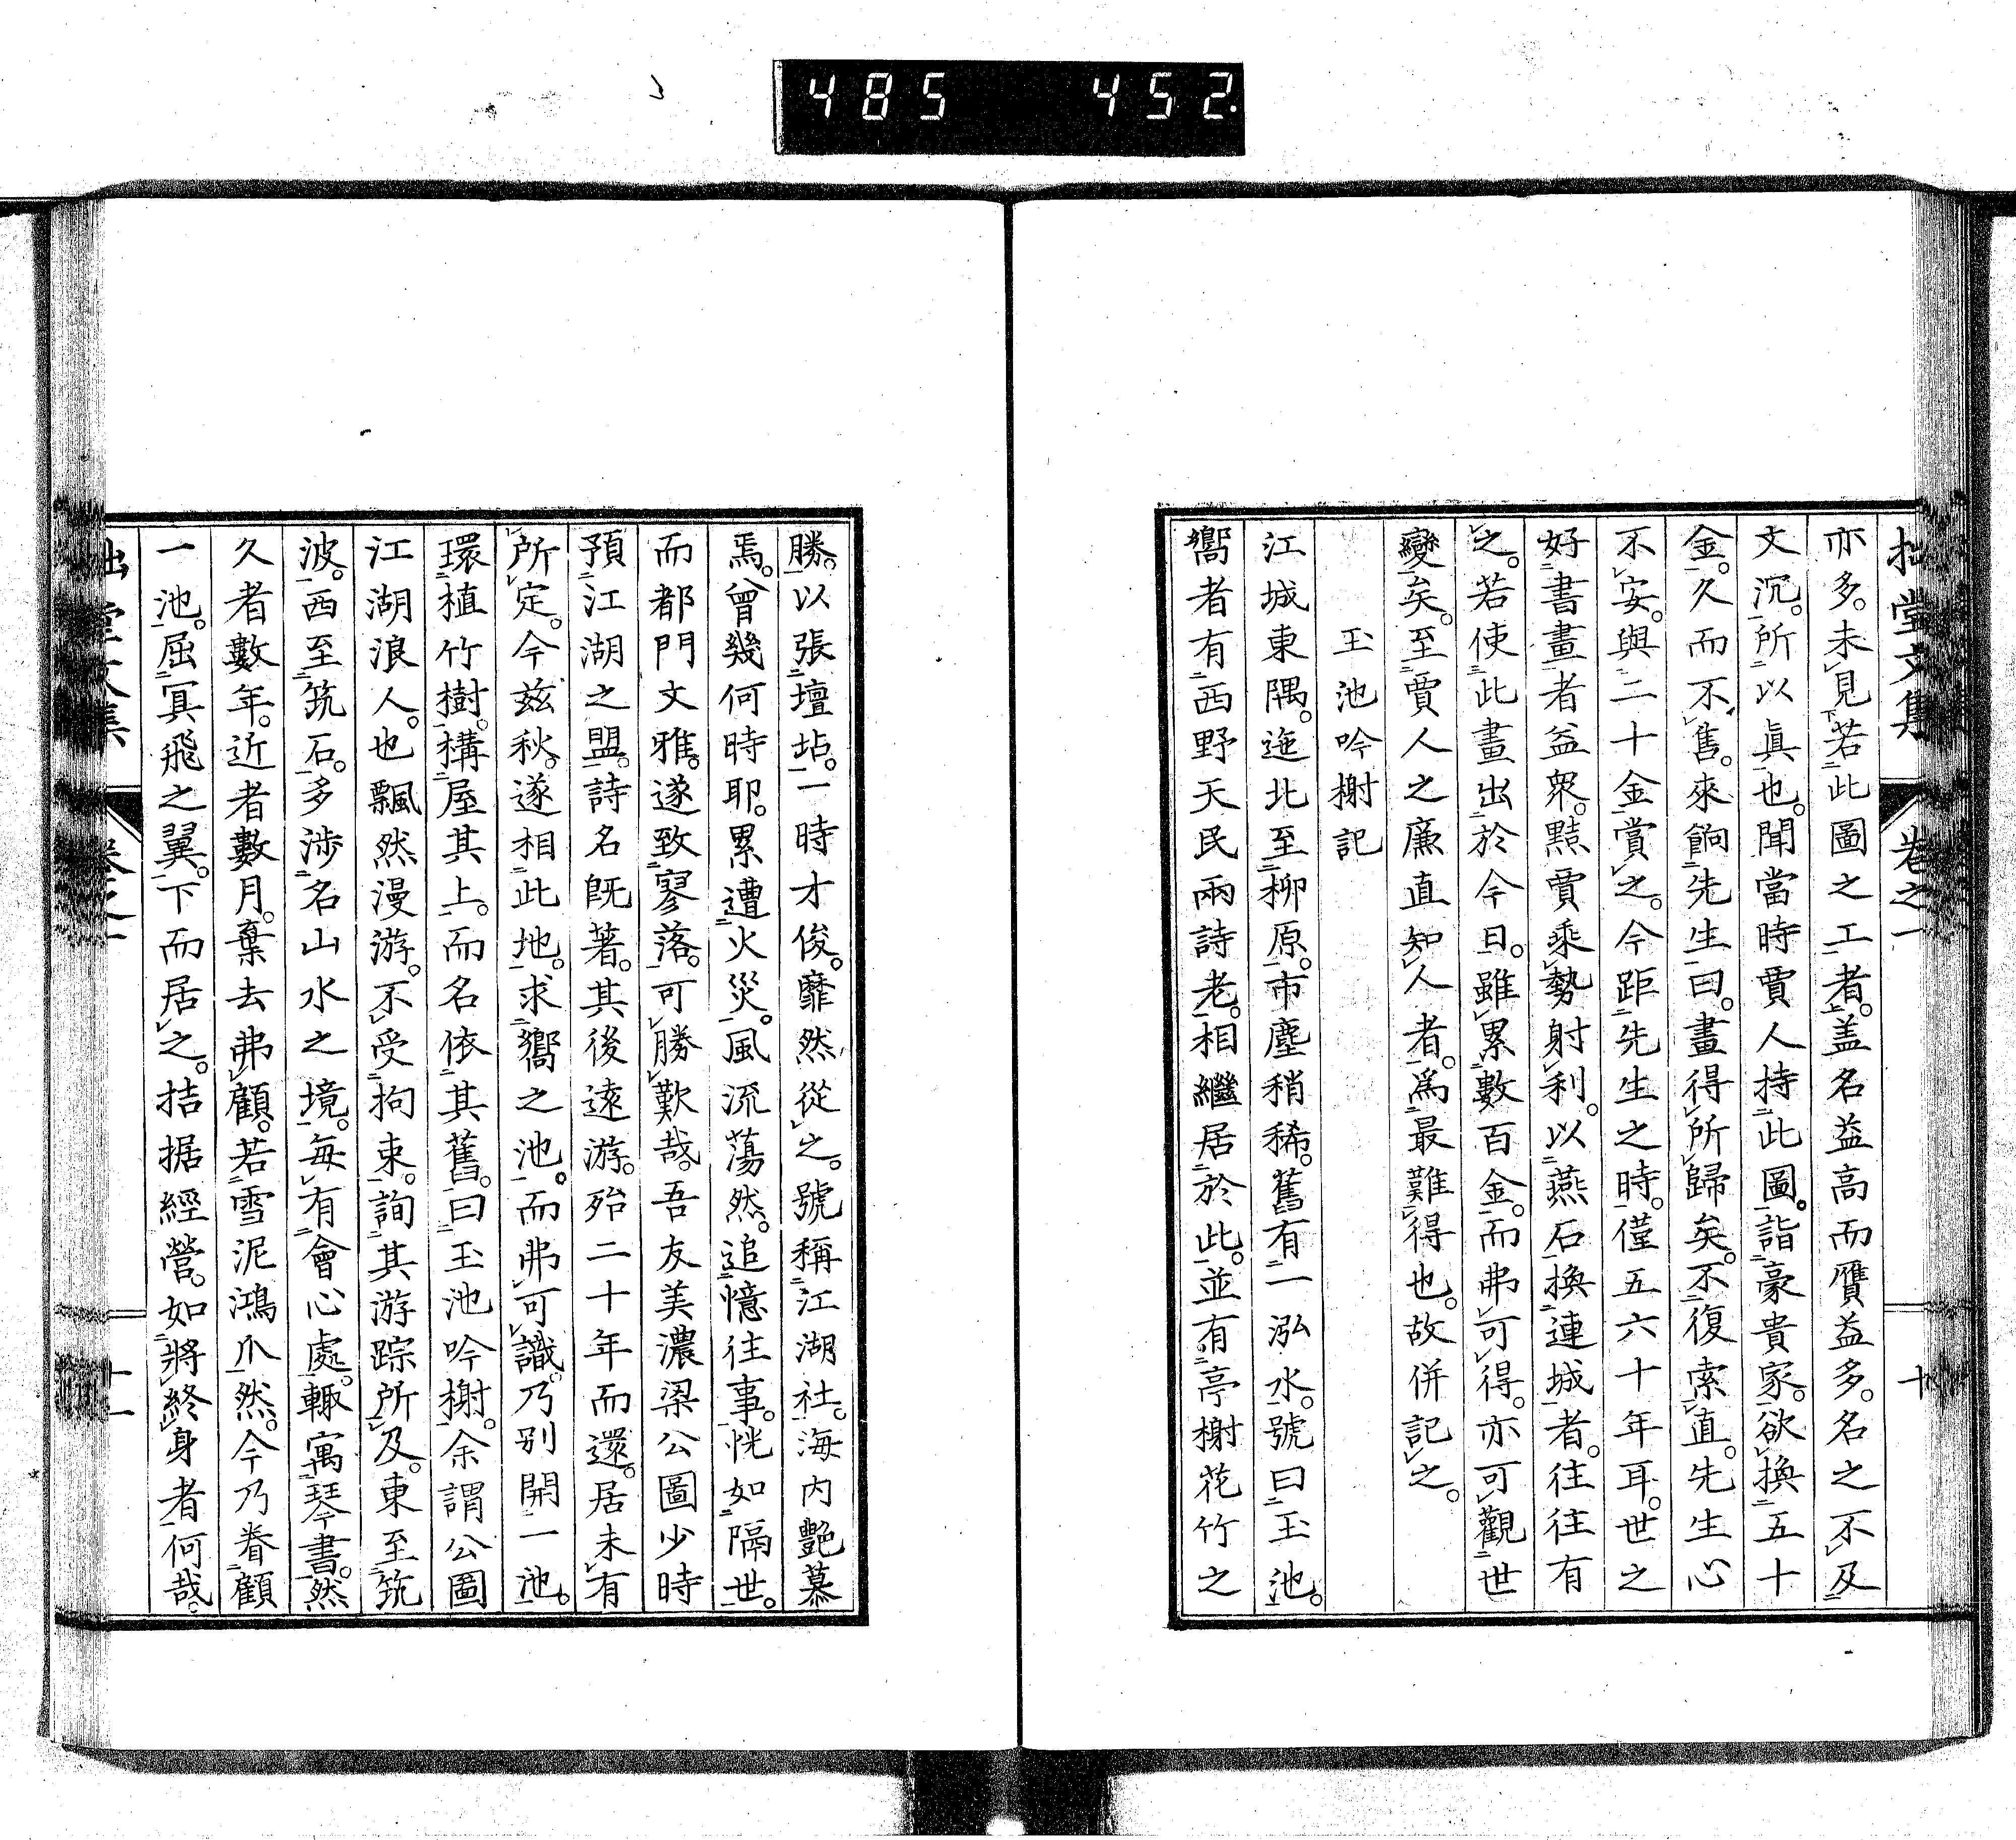 485 452
拙堂文集 卷之一 十
亦多。未見若此圖之工者。盖名益高而贋益多。名之不及
文沉。所以眞也。聞當時賈人持此圖。詣豪貴家。欲換五十
金。久而不售。來餉先生曰。畫得所歸矣。不復索直。先生心
不安。與二十金賞之。今距先生之時。僅五六十年耳。世之
好書畫者益衆。黠賈乘勢射利。以燕石換連城者。往往有
之。若使此畫出於今日。雖累數百金。而弗可得。亦可觀世
變矣。至賈人之廉直知人者。爲最難得也。故併記之。
玉池吟榭記
江城東隅。迤北至柳原。市塵稍稀。舊有一泓水。號曰玉池。
嚮者有西野天民兩詩老。相繼居於此。並有亭榭花竹之
勝。以張壇坫。一時才俊。靡然從之。號稱江湖社。海内艶慕
焉。曾幾何時耶。累遭火災。風流蕩然。追憶往事。恍如隔世。
而都門文雅。遂致寥落。可勝歎哉。吾友美濃梁公圖少時
預江湖之盟。詩名既著。其後遠游。殆二十年而還。居未有
所定。今茲秋。遂相此地。求嚮之池。而弗可識。乃別開一池。
環植竹樹。構屋其上。而名依其舊。曰玉池吟榭。余謂公圖
江湖浪人。也飄然漫游。不受拘束。詢其游踪所及。東至筑
波。西至筑石。多涉名山水之境。每有會心處。輙寓琴書。然
久者數年。近者數月。棄去弗顧。若雪泥鴻爪然。今乃眷顧
一池。屈冥飛之翼。下而居之。拮据經營。如將終身者何哉。
拙堂文集 卷之一 十一